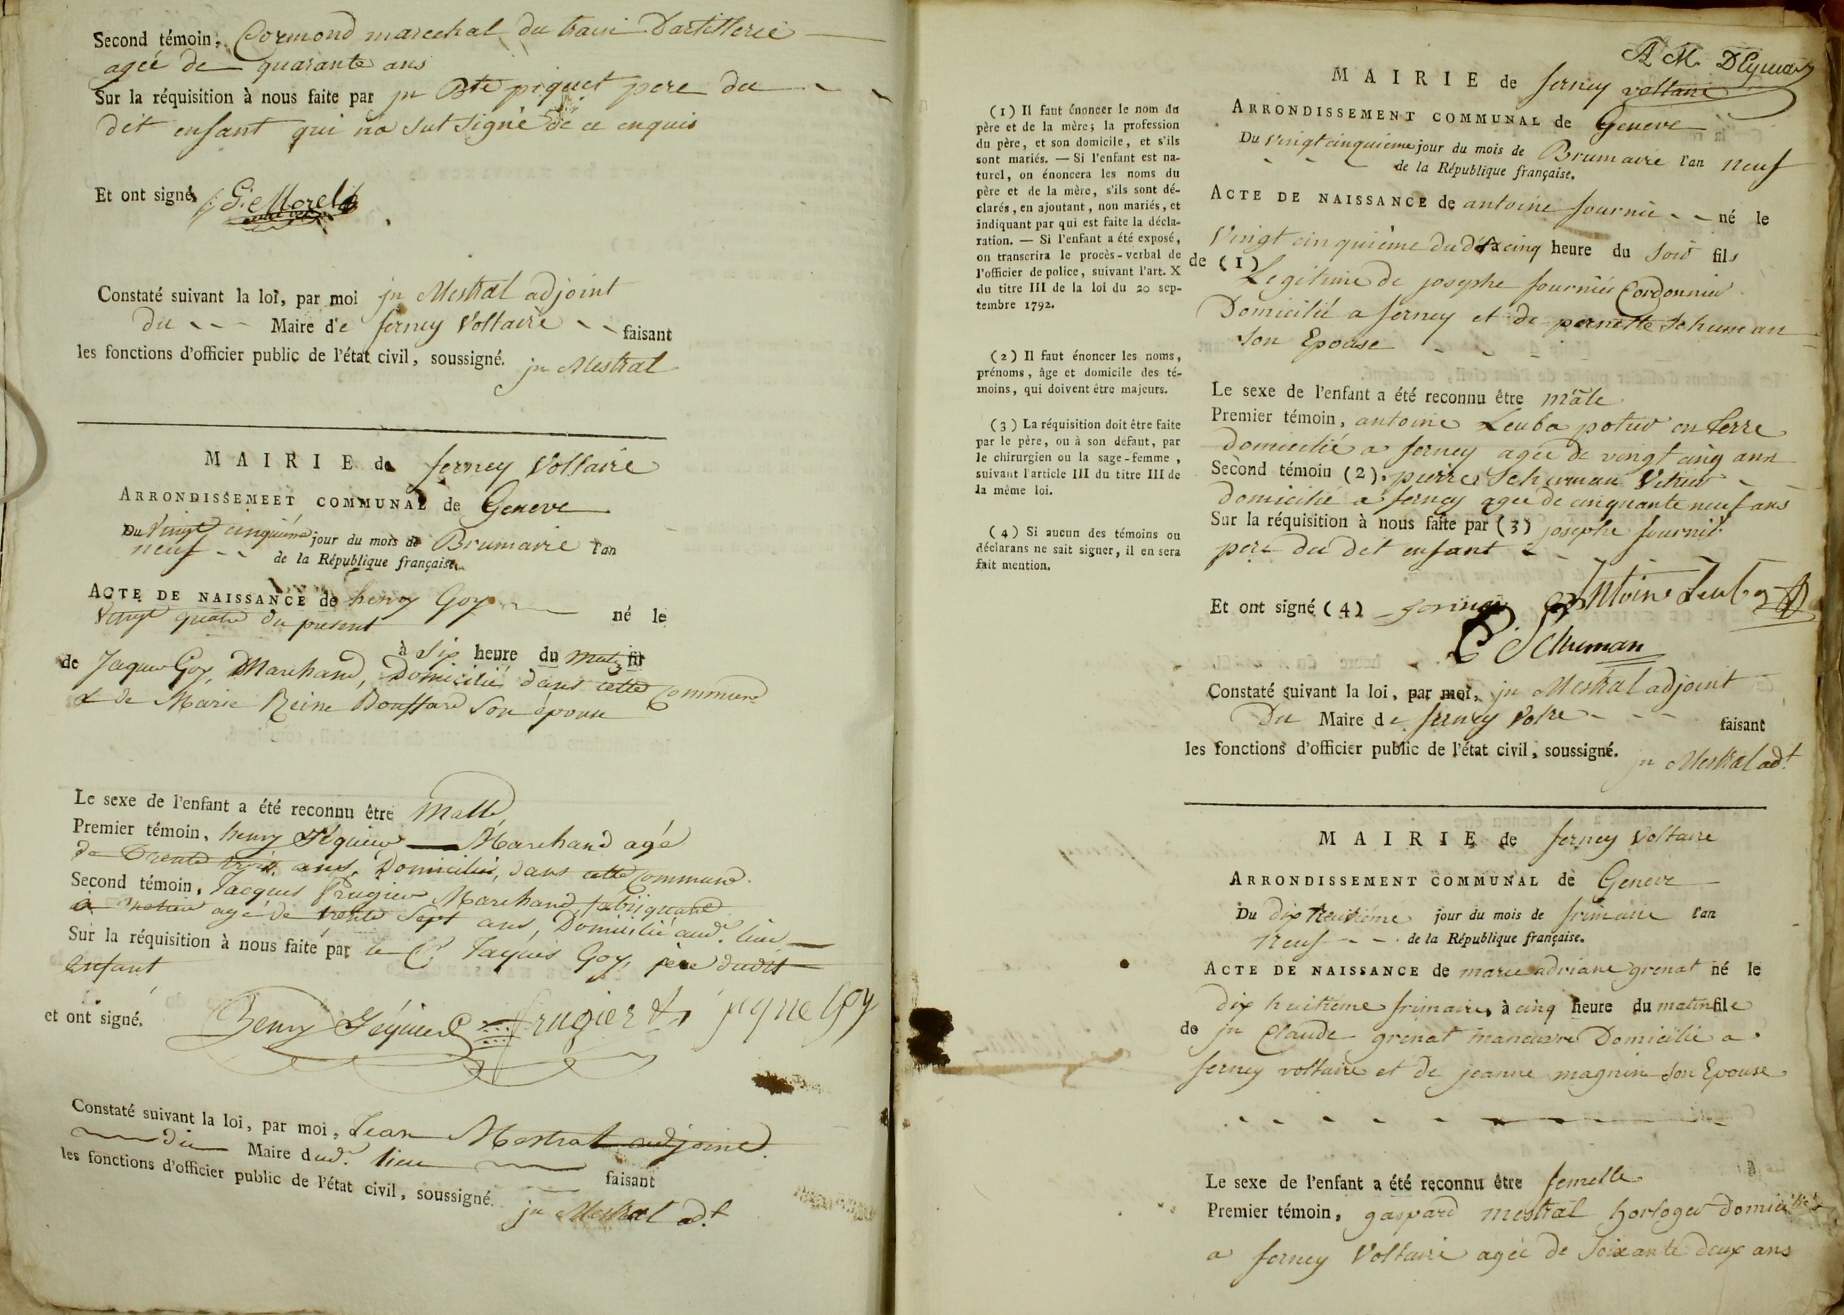 Second témoin, Cormond marechal du train Dartillerie
agée de quarante ans
Sur la réquisition à nous faite par jn Bte piquet pere du
dit enfant qui na sut signé de ce enquis
Et ont signé, G. Morel
Constaté suivant la loi, par moi jn Mestral adjoint
du Maire de ferney Voltaire faisant
les fonctions d'officier public de l'état civil, soussigné. jn Mestral
MAIRIE de ferney Voltaire
ARRONDISSEMEET COMMUNAL de Geneve
Du Vingt cinquiéme jour du mois de Brumaire l'an
neuf de la République française.
ACTE DE NAISSANCE de henry Goy
Vingt quatre du present né le
à Six heure du matin fil
de Jaques Goy, Marchand, Domicilié dans cette Commune
& de Marie Reine Bouffard Son epouse
Le sexe de l'enfant a été reconnu être Malle
Premier témoin, henry Marchand agé
de Trente trois ans, Domicilié, dans cette Commune.
Second témoin, Jacques frugier Marchand fabriquand
agé de trente Sept ans, Domicilié aud. lieu
Sur la réquisition à nous faite par le C. Jaques Goy, père dudit
enfant
et ont signé. Henry frugier jaque Goy
Constaté suivant la loi, par moi, Jean Mestral adjoint
du Maire dud. lieu faisant
les fonctions d'officier public de l'état civil, soussigné. jn Mestral adt.
(1) Il faut énoncer le nom du
père et de la mère; la profession
du père, et son domicile, et s'ils
sont mariés. — Si l'enfant est na-
turel, on énoncera les noms du
père et de la mère, s'ils sont dé-
clarés, en ajoutant, non mariés, et
indiquant par qui est faite la décla-
ration. — Si l'enfant a été exposé,
on transcrira le procès-verbal de
l'officier de police, suivant l'art. X
du titre III de la loi du 20 sep-
tembre 1792.
(2) Il faut énoncer les noms,
prénoms, âge et domicile des té-
moins, qui doivent être majeurs.
(3) La réquisition doit être faite
par le père, ou à son défaut, par
le chirurgien ou la sage-femme,
suivant l'article III du titre III de
la même loi.
(4) Si aucun des témoins ou
déclarans ne sait signer, il en sera
fait mention.
MAIRIE de ferney voltaire
ARRONDISSEMENT COMMUNAL de Geneve
Du vingt cinquieme jour du mois de Brumaire l'an neuf
de la République française.
ACTE DE NAISSANCE de antoine fournié né le
Vingt cinquième du dt à cinq heure du Soir fils
de (1) Legitime de josephe fournié Cordonnier
Domicilié a ferney et de pernette Schuman
Son Epouse
Le sexe de l'enfant a été reconnu être mâle
Premier témoin, antoine Leuba potier en terre
domicilié a ferney agée de vingt cinq ans
Second témoin (2), pierre Schuman
domicilié a ferney agee de cinquante neuf ans
Sur la réquisition à nous faite par (3) josephe fournié
pere du dit enfant
Et ont signé (4) Antoine Leuba
Schuman
Constaté suivant la loi, par moi, jn Mestral adjoint
Du Maire de ferney Voltre faisant
les fonctions d'officier public de l'état civil, soussigné. jn Mestral adt.
MAIRIE de ferney Voltaire
ARRONDISSEMENT COMMUNAL de Geneve
Du dix huitiéme jour du mois de frimaire l'an
neuf de la République française.
ACTE DE NAISSANCE de marie adriane grenat né le
dix huitieme frimaire, à cinq heure du matin fille
de jn Claude grenat manoeuvre Domicilié a
ferney voltaire et de jeanne magnin son Epouse
Le sexe de l'enfant a été reconnu être femelle
Premier témoin, gaspard mestral horloger Domicilié
a ferney Voltaire agée de Soixante deux ans